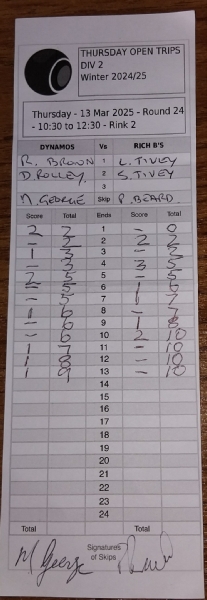 THURSDAY OPEN TRIPS
DIV 2
Winter 2024/25
Thursday - 13 Mar 2025 - Round 24
- 10:30 to 12:30 - Rink 2
DYNAMOS Vs RICH B'S
R. BROWN 1 L. TIVEY
D. ROLLEY, 2 S. TIVEY
3
M. GEORGE Skip P. BEARD.
Score Total Ends Score Total
2 2 1 - 0
- 2 2 2 2
1 3 3 - 2
- 3 4 3 5
2 5 5 - 5
- 5 6 1 6
- 5 7 1 7
1 6 8 - 7
- 6 9 1 8
- 6 10 2 10
1 7 11 - 10
1 8 12 - 10
1 9 13 - 10
14
15
16
17
18
19
20
21
22
23
24
Total Total
Signatures
of Skips
M George